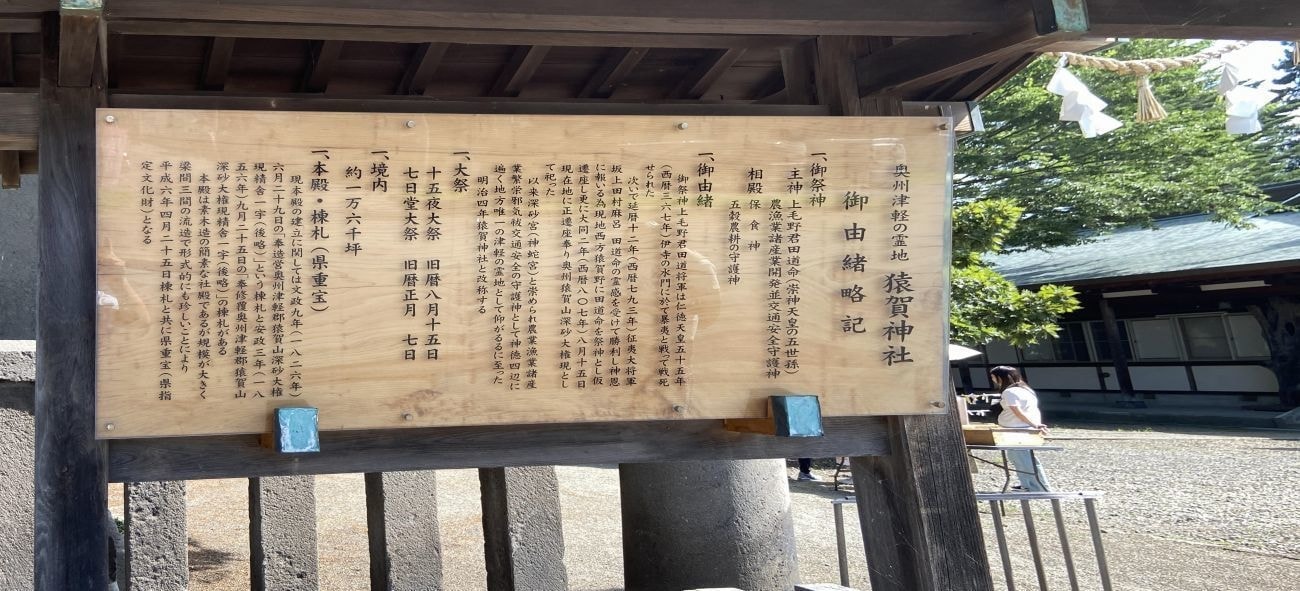 奥州津軽の霊地 猿賀神社
御由緒略記
一、御祭神
主神 上毛野君田道命(崇神天皇の五世孫)
農漁業諸産業開発並交通安全守護神
相殿 保食神
五穀農耕の守護神
一、御由緒
御祭神上毛野君田道将軍は仁徳天皇五十五年
(西暦三六七年)伊寺の水門に於て暴夷と戦って戦死
せられた
次いで延暦十二年(西暦七九三年)征夷大将軍
坂上田村麻呂 田道命の霊感を受けて勝利し神恩
に報いる為現地西方猿賀野に田道命を祭神とし仮
遷座し更に大同二年(西暦八〇七年)八月十五日
現在地に正遷座奉り奥州猿賀山深砂大権現とし
て祀った
以来深砂宮(神蛇宮)と崇められ農業漁業諸産
業繁栄邪気祓交通安全の守護神として神徳四辺に
遍く地方唯一の津軽の霊地として仰がるるに至った
明治四年猿賀神社と改称する
一、大祭
十五夜大祭 旧暦八月十五日
七日堂大祭 旧暦正月 七日
一、境内
約一万六千坪
一、本殿・棟札(県重宝)
現本殿の建立に関しては文政九年(一八二六年)
六月二十九日の「奉造営奥州津軽郡猿賀山深砂大権
現精舎一宇(後略)」という棟札と安政三年(一八
五六年)九月二十五日の「奉修覆奥州津軽郡猿賀山
深砂大権現精舎一宇(後略)」の棟札がある
本殿は素木造の簡素な社殿であるが規模が大きく
梁間三間の流造で形式的にも珍しいことにより
平成六年四月二十五日棟札と共に県重宝(県指
定文化財)となる